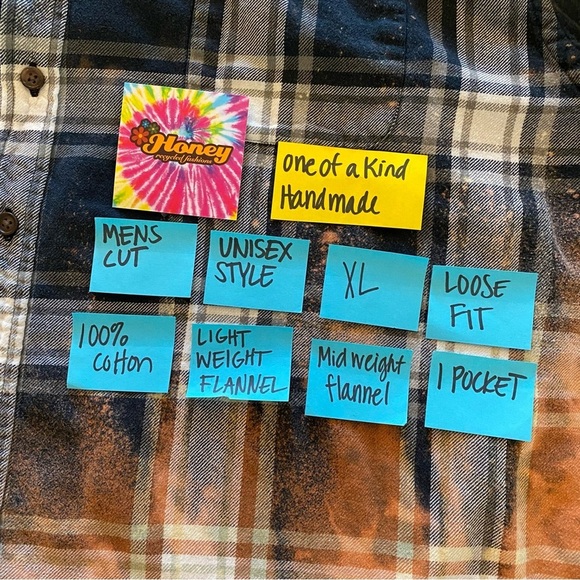 Honey
recycled fashions
one of a Kind
Handmade
MENS
CUT
UNISEX
STYLE
XL
LOOSE
FIT
100%
cotton
LIGHT
WEIGHT
FLANNEL
Mid weight
flannel
1 POCKET